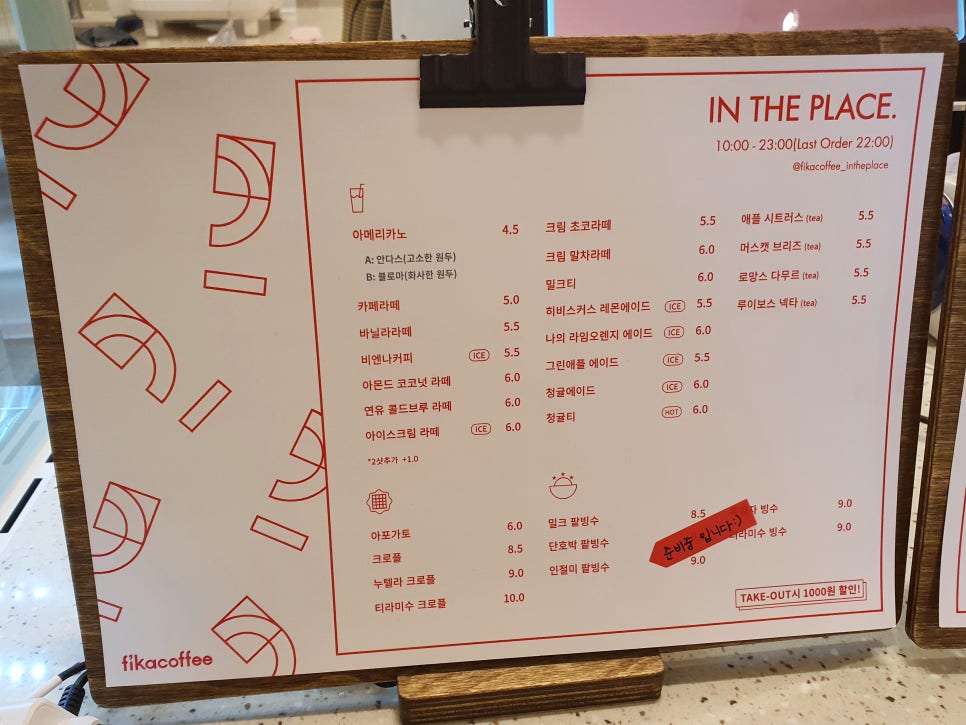 IN THE PLACE.
10:00 - 23:00(Last Order 22:00)
@fikacoffee_intheplace
아메리카노 4.5
A: 안다스(고소한 원두)
B: 블로마(화사한 원두)
카페라떼 5.0
바닐라라떼 5.5
비엔나커피 ICE 5.5
아몬드 코코넛 라떼 6.0
연유 콜드브루 라떼 6.0
아이스크림 라떼 ICE 6.0
*2샷추가 +1.0
크림 초코라떼 5.5
크림 말차라떼 6.0
밀크티 6.0
히비스커스 레몬에이드 ICE 5.5
나의 라임오렌지 에이드 ICE 6.0
그린애플 에이드 ICE 5.5
청귤에이드 ICE 6.0
청귤티 HOT 6.0
애플 시트러스 (tea) 5.5
머스캣 브리즈 (tea) 5.5
로망스 다무르 (tea) 5.5
루이보스 넥타 (tea) 5.5
아포가토 6.0
크로플 8.5
누텔라 크로플 9.0
티라미수 크로플 10.0
밀크 팥빙수 8.5
단호박 팥빙수
인절미 팥빙수 9.0
빙수 9.0
빙수 9.0
준비중 입니다:)
TAKE-OUT시 1000원 할인!
fikacoffee